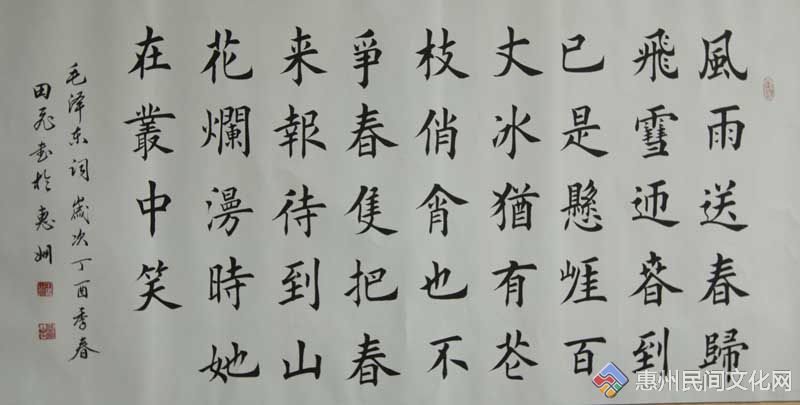 風雨送春歸
飛雪迎萅到
已是懸崕百
丈冰猶有芲
枝俏肖也不
爭春隻把春
来報待到山
花爛漫時她
在叢中笑
毛泽东词歲次丁酉季春
田飞书於惠州
惠州民间文化网